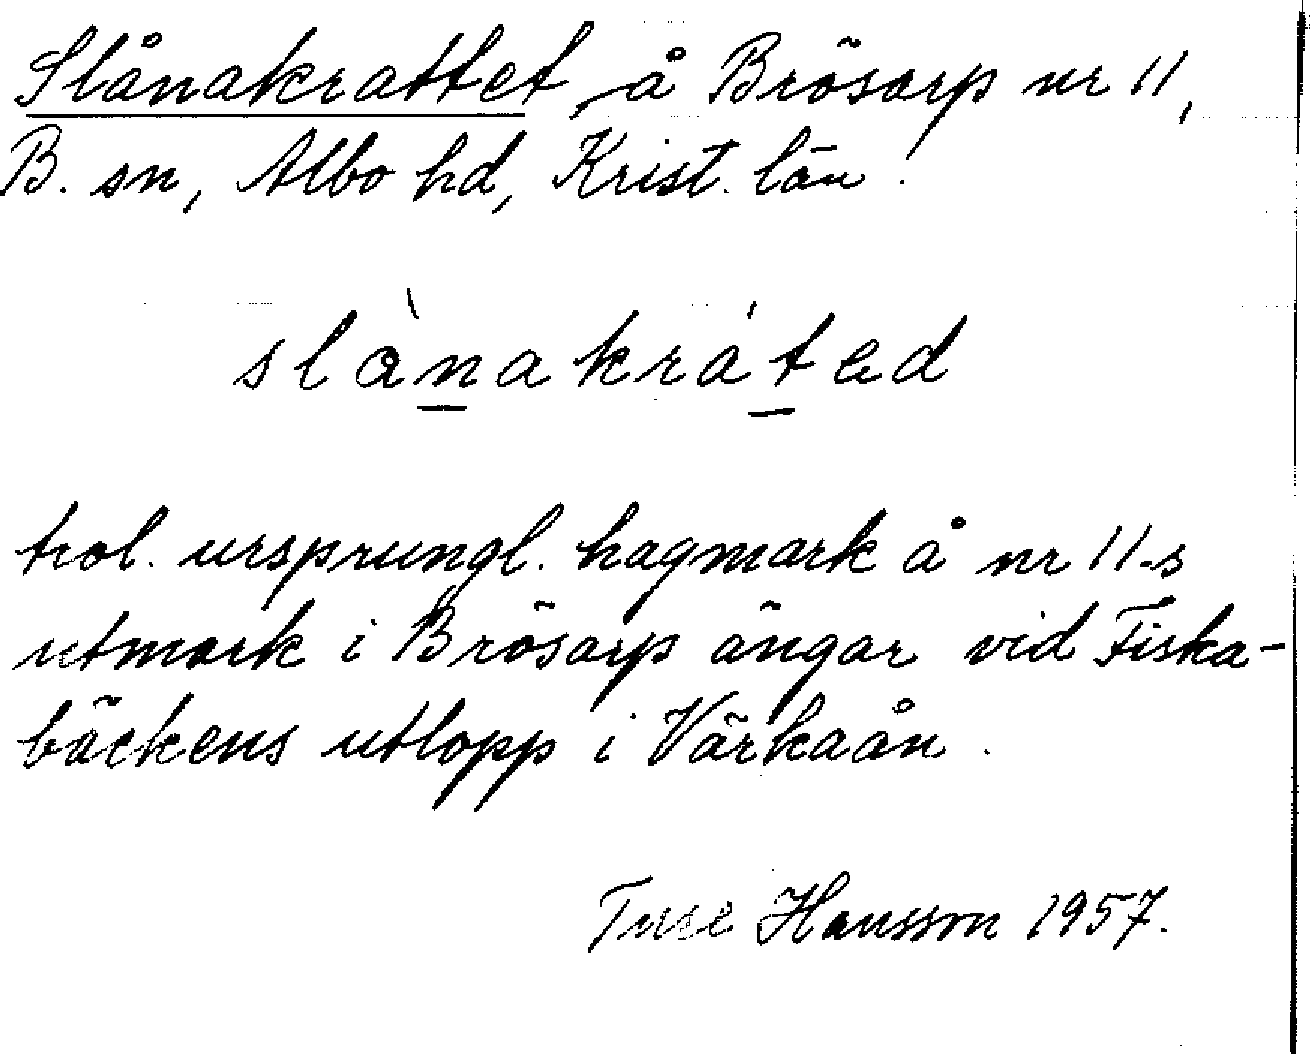 Slånakrattet, å Brösarp nr 11,
B. sn, Albo hd, Krist. län.
slånakrátəd
trol. ursprungl. hagmark å nr 11-s
utmark i Brösarps ängar vid Fiska-
bäckens utlopp i Värkaån.
Ture Hansson 1957.